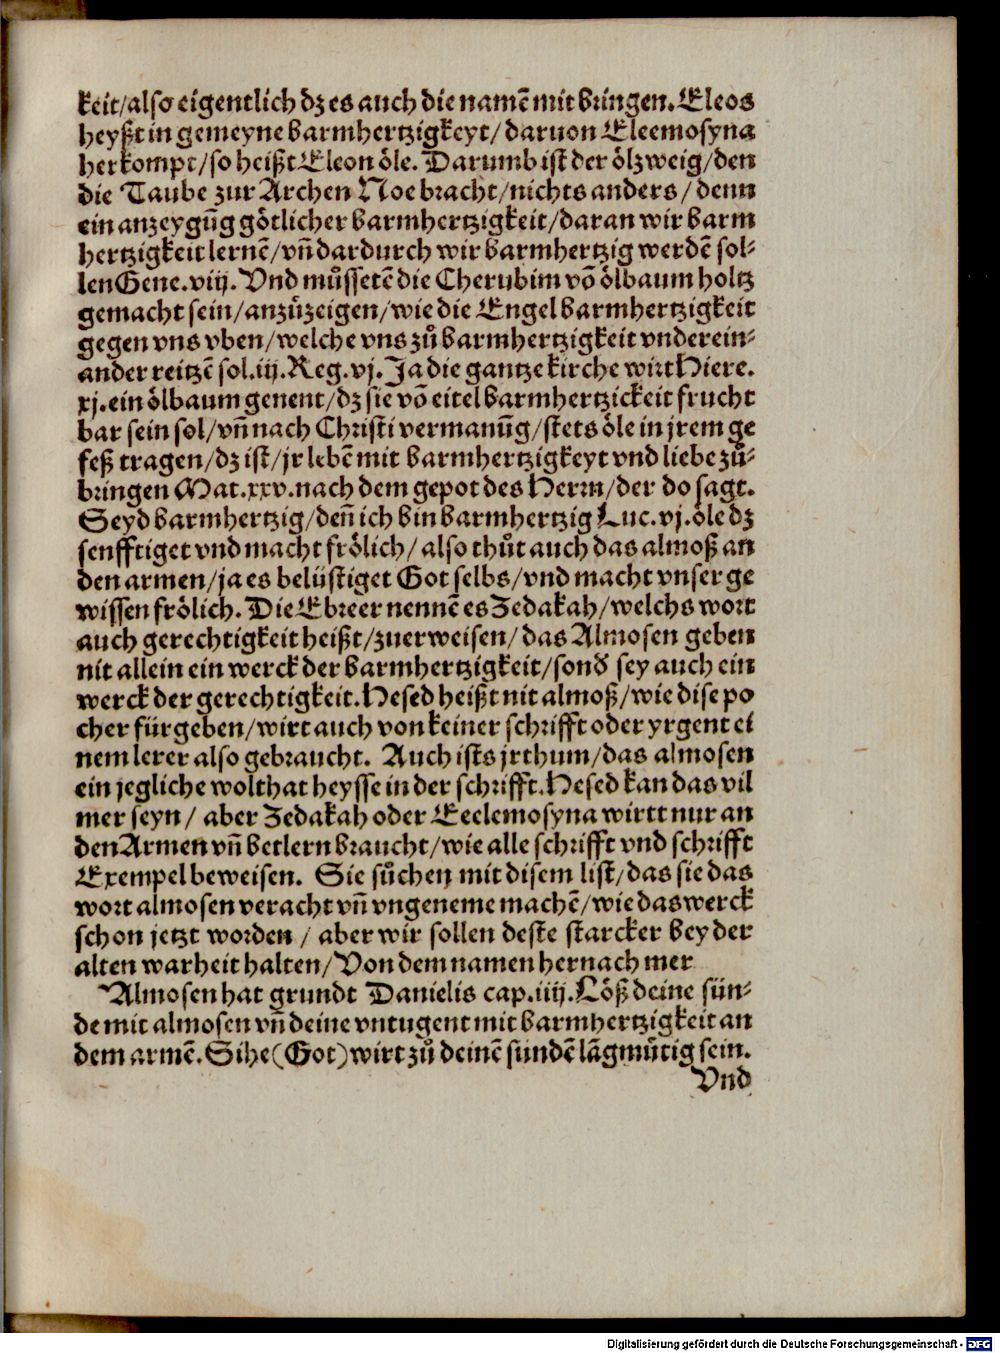 keit/also eigentlich dz es auch die namē mit bringen. Eleos
heyßt in gemeyne barmhertzigkeyt/ daruon Eleemosyna
herkompt/so heißt Eleon öle. Darumb ist der ölzweig/den
die Taube zur Archen Noe bracht/nichts anders/ denn
ein anzeygūg götlicher barmhertzigkeit/daran wir barm
hertzigkeit lernē/vn̄ dardurch wir barmhertzig werdē sol-
len Gene.viij. Vnd můssetē die Cherubim vō ölbaum holtz
gemacht sein/anzůzeigen/wie die Engel barmhertzigkeit
gegen vns vben/welche vns zů barmhertzigkeit vnderein-
ander reitzē sol.iij.Reg.vj. Ja die gantze kirche wirt Hiere.
xj.ein ölbaum genent/dz sie vō eitel barmhertzickeit frucht
bar sein sol/vn̄ nach Christi vermanūg/stets öle in jrem ge
feß tragen/dz ist/jr lebē mit barmhertzigkeyt vnd liebe zů-
bringen Mat.xxv.nach dem gepot des Herrn/der do sagt.
Seyd barmhertzig/den̄ ich bin barmhertzig Luc.vj.öle dz
senfftiget vnd macht frölich/ also thůt auch das almoß an
den armen/ja es belüstiget Got selbs/vnd macht vnser ge
wissen frölich. Die Ebreer nennē es Zedakah/welchs wort
auch gerechtigkeit heißt/zuerweisen/ das Almosen geben
nit allein ein werck der barmhertzigkeit/sonđ sey auch ein
werck der gerechtigkeit.Hesed heißt nit almoß/wie dise po
cher fürgeben/wirt auch von keiner schrifft oder yrgent ei
nem lerer also gebraucht. Auch ists jrthum/das almosen
ein jegliche wolthat heysse in der schrifft.Hesed kan das vil
mer seyn/ aber Zedakah oder Eeclemosyna wirtt nur an
den Armen vn̄ betlern braucht/wie alle schrifft vnd schrifft
Exempel beweisen. Sie sůchen mit disem list/das sie das
wort almosen veracht vn̄ vngeneme machē/wie das werck
schon jetzt worden / aber wir sollen deste starcker bey der
alten warheit halten/Von dem namen hernach mer
Almosen hat grundt Danielis cap.iiij.Löß deine sün-
de mit almosen vn̄ deine vntugent mit barmhertzigkeit an
dem armē.Sihe(Got)wirt zů deinē sundē lāgmůtig sein.
Vnd
Digitalisierung gefördert durch die Deutsche Forschungsgemeinschaft - DFG